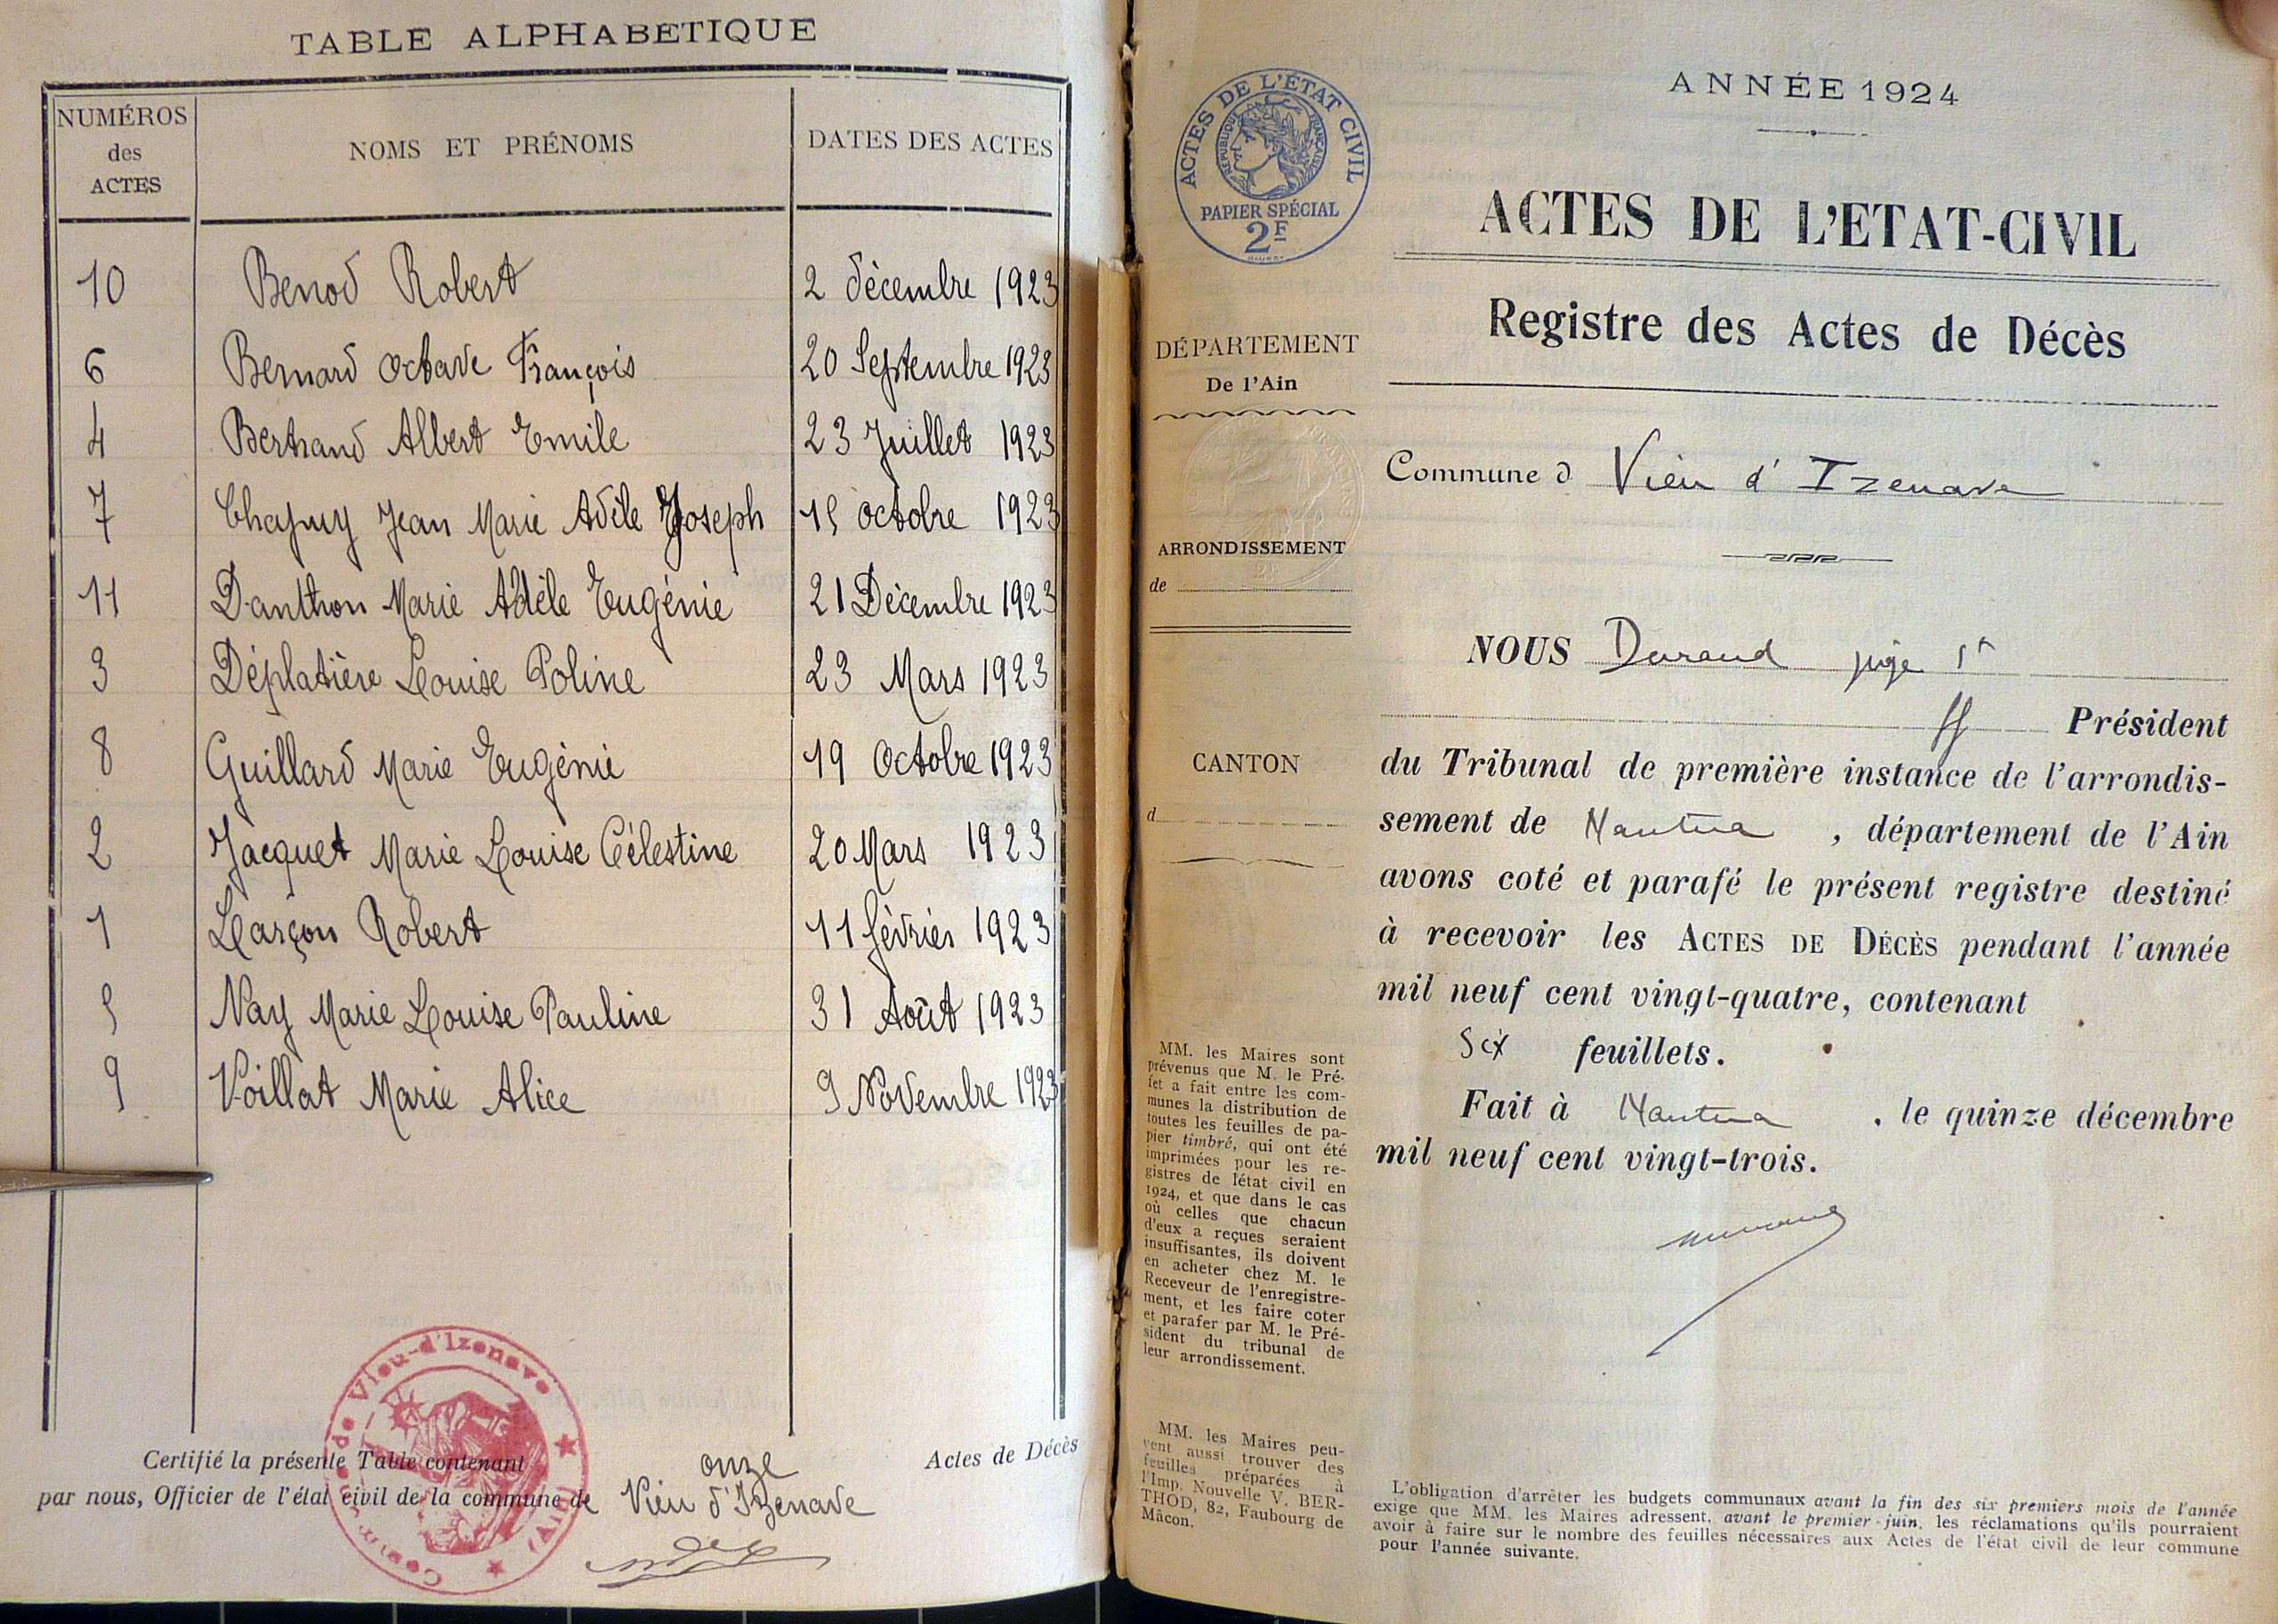 TABLE ALPHABETIQUE
NUMÉROS des ACTES
NOMS ET PRÉNOMS
DATES DES ACTES
10 Benod Robert 2 décembre 1923
6 Bernard Octave François 20 Septembre 1923
4 Bertrand Albert Emile 23 Juillet 1923
7 Chapuy Jean Marie Adèle Joseph 15 octobre 1923
11 Danthon Marie Adèle Eugénie 21 Décembre 1923
3 Déplatière Louise Poline 23 Mars 1923
8 Guillard Marie Eugénie 19 Octobre 1923
2 Jacquet Marie Louise Célestine 20 Mars 1923
1 Larçon Robert 11 février 1923
5 Nay Marie Louise Pauline 31 Août 1923
9 Voillat Marie Alice 9 Novembre 1923
Certifié la présente Table contenant onze Actes de Décès
par nous, Officier de l'état civil de la commune de Vieu d'Izenave
Commune de Vieu-d'Izenave
(Ain)
ACTES DE L'ÉTAT CIVIL
RÉPUBLIQUE FRANÇAISE
PAPIER SPÉCIAL
2F
DÉPARTEMENT
De l'Ain
ARRONDISSEMENT
de
CANTON
d
MM. les Maires sont
prévenus que M. le Pré-
fet a fait entre les com-
munes la distribution de
toutes les feuilles de pa-
pier timbré, qui ont été
imprimées pour les re-
gistres de l'état civil en
1924, et que dans le cas
où celles que chacun
d'eux a reçues seraient
insuffisantes, ils doivent
en acheter chez M. le
Receveur de l'enregistre-
ment, et les faire coter
et parafer par M. le Pré-
sident du tribunal de
leur arrondissement.
MM. les Maires peu-
vent aussi trouver des
feuilles préparées à
l'Imp. Nouvelle V. BER-
THOD, 82, Faubourg de
Mâcon.
ANNÉE 1924
ACTES DE L'ETAT-CIVIL
Registre des Actes de Décès
Commune d Vieu d'Izenave
NOUS Durand juge
ff Président
du Tribunal de première instance de l'arrondis-
sement de Nantua, département de l'Ain
avons coté et parafé le présent registre destiné
à recevoir les ACTES DE DÉCÈS pendant l'année
mil neuf cent vingt-quatre, contenant
Six feuillets.
Fait à Nantua, le quinze décembre
mil neuf cent vingt-trois.
L'obligation d'arrêter les budgets communaux avant la fin des six premiers mois de l'année
exige que MM. les Maires adressent, avant le premier juin, les réclamations qu'ils pourraient
avoir à faire sur le nombre des feuilles nécessaires aux Actes de l'état civil de leur commune
pour l'année suivante.